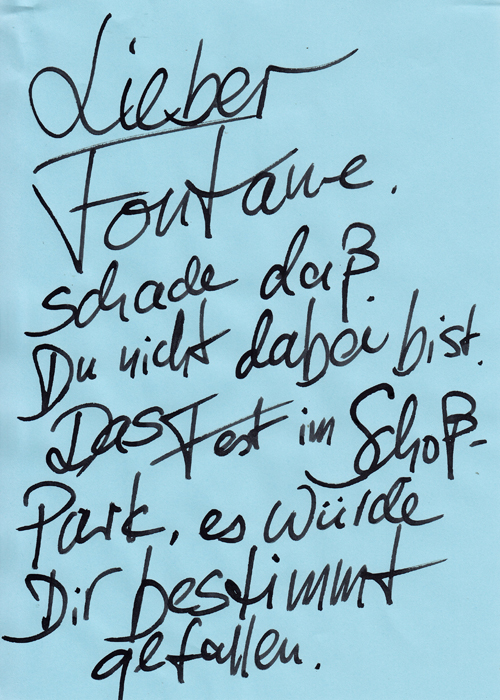 Lieber
Fontane.
schade daß
Du nicht dabei bist.
Das Fest im Schoß-
Park, es würde
Dir bestimmt
gefallen.